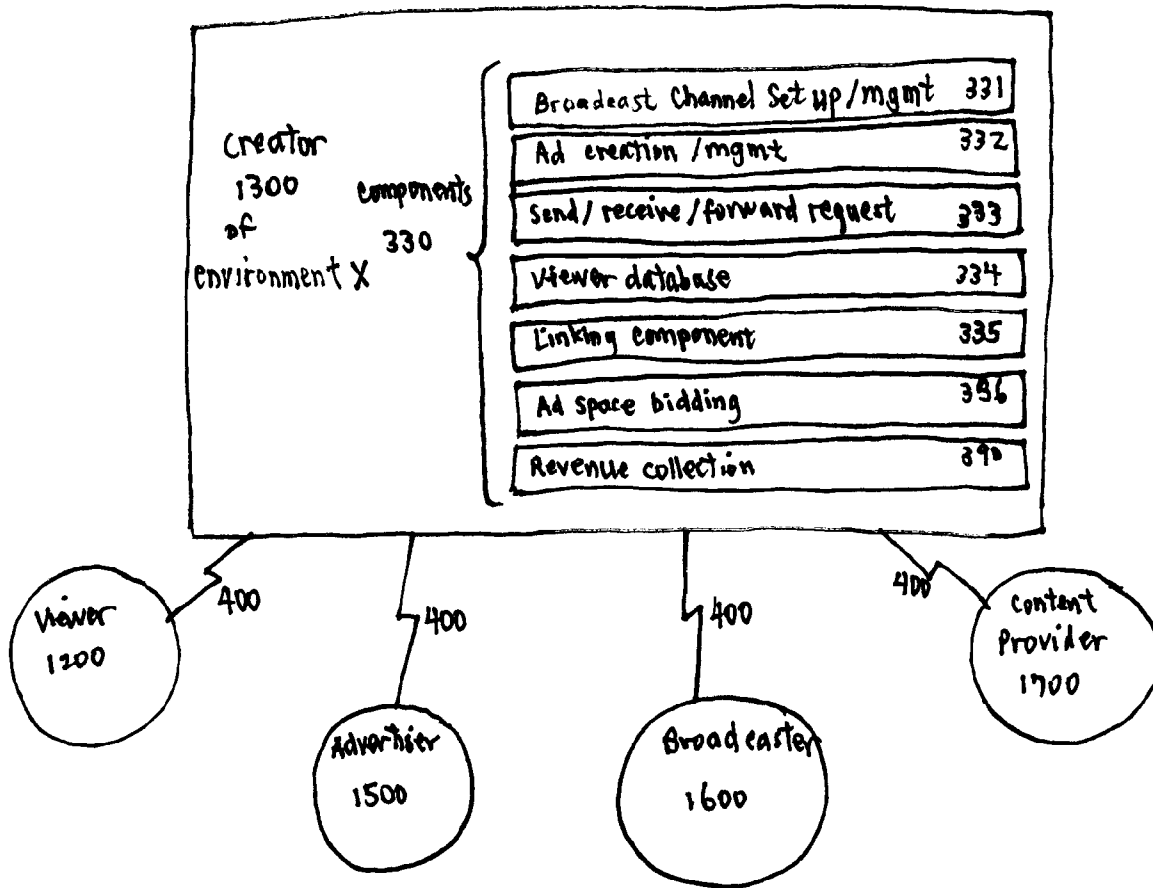 Creator
1300
of
environment X
components
330
Broadcast Channel Set up/mgmt 331
Ad creation/mgmt 332
Send/receive/forward request 333
Viewer database 334
Linking component 335
Ad space bidding 336
Revenue collection 390
400
400
400
400
Viewer
1200
Advertiser
1500
Broadcaster
1600
Content
Provider
1700